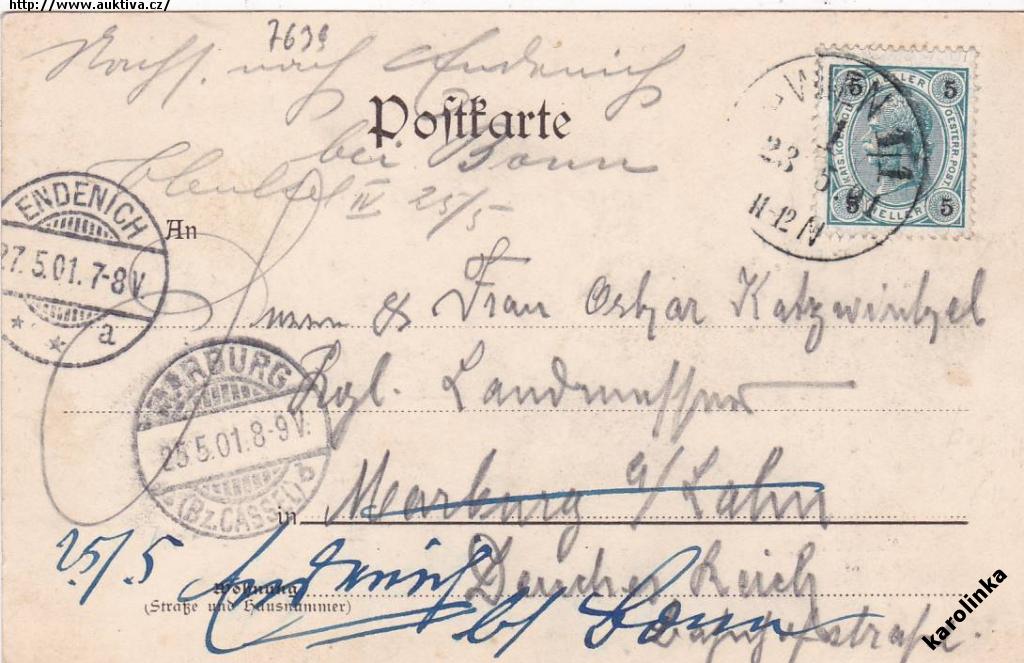 http://www.auktiva.cz/
7639
Nachs. nach Endenich
Postkarte
bei Bonn
IV 25/5
WIEN 1/1
23 5 01
11-12 N
5 HELLER 5
KAIS. KÖNIGL. OESTERR. POST.
5 HELLER 5
ENDENICH
27.5.01.7-8V.
* * a
An
Herrn & Frau Oskar Katzwinkel
MARBURG
25.5.01.8-9V.
(BZ.CASSEL) b
Kgl. Landmesser
in Marburg a/Lahn
25/5
Endenich
Deutsches Reich
Wohnung
(Straße und Hausnummer)
b/ Bonn
karolinka